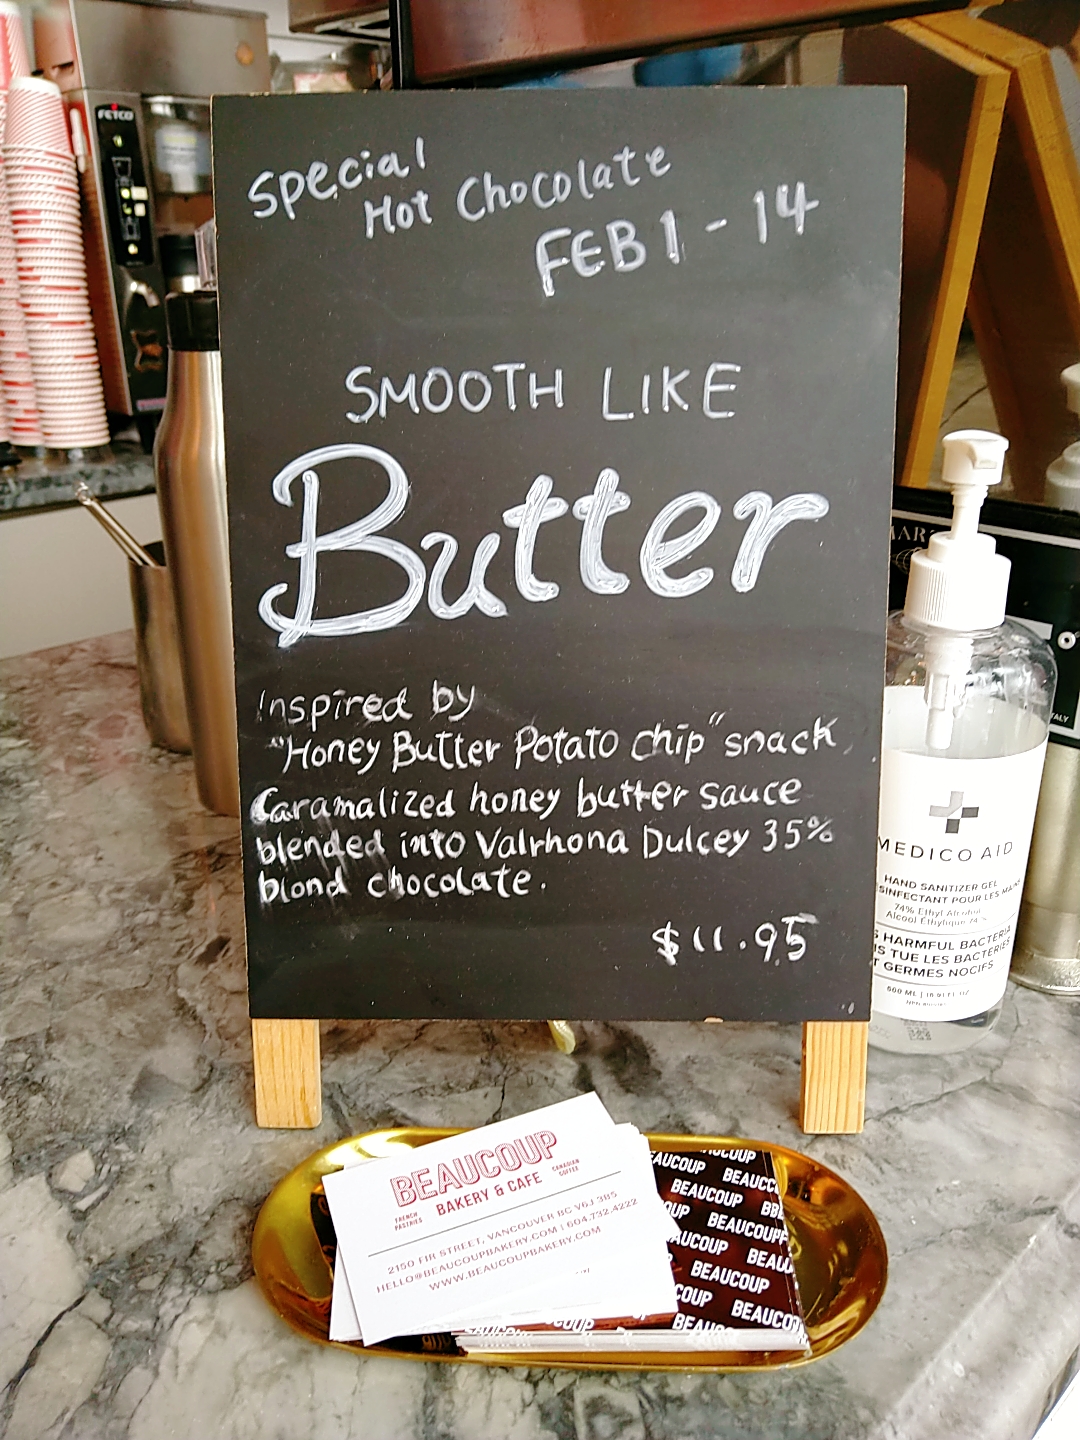 FETCO
Special
Hot Chocolate
FEB 1 - 14
SMOOTH LIKE
Butter
Inspired by
"Honey Butter Potato chip" snack
Caramalized honey butter sauce
blended into Valrhona Dulcey 35%
blond chocolate.
$11.95
MEDICO AID
HAND SANITIZER GEL
SINFECTANT POUR LES MAINS
74% Ethyl Alcohol
Alcool Éthylique 74%
S HARMFUL BACTERIA
NS TUE LES BACTÉRIES
T GERMES NOCIFS
500 ML | 16.91 FL OZ
ITALY
BEAUCOUP
BAKERY & CAFE
FRENCH
PASTRIES
CANADIAN
COFFEE
2150 FIR STREET, VANCOUVER BC V6J 3B5
HELLO@BEAUCOUPBAKERY.COM | 604.732.4222
WWW.BEAUCOUPBAKERY.COM
BEAUCOUP
BEAUCOUP
BEAUCOUP
BEAUCOUP
BEAUCOUP